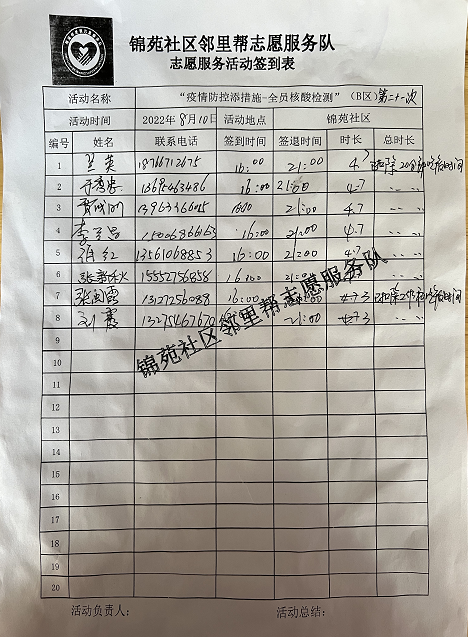 锦苑社区邻里帮志愿服务队
志愿服务活动签到表
活动名称 “疫情防控添措施-全员核酸检测”（B区）第二十一次
活动时间 2022年8月10日 活动地点 锦苑社区
编号 姓名 联系电话 签到时间 签退时间 时长 总时长
1 兰英 18766712675 16:00 21:00 4.7 扣除20分钟吃饭时间
2 13675463486 16:00 21:00 4.7
3 1600 21:00 4.7
4 16:00 21:00 4.7
5 张红 13561068853 16:00 21:00 4.7
6 15552756858 16:00 21:00 4.7
7 13127256088 16:00 21:00
8 刘霞 13275467670 21:00
9
10
11
12
13
14
15
16
17
18
19
20
锦苑社区邻里帮志愿服务队
活动负责人： 活动总结：